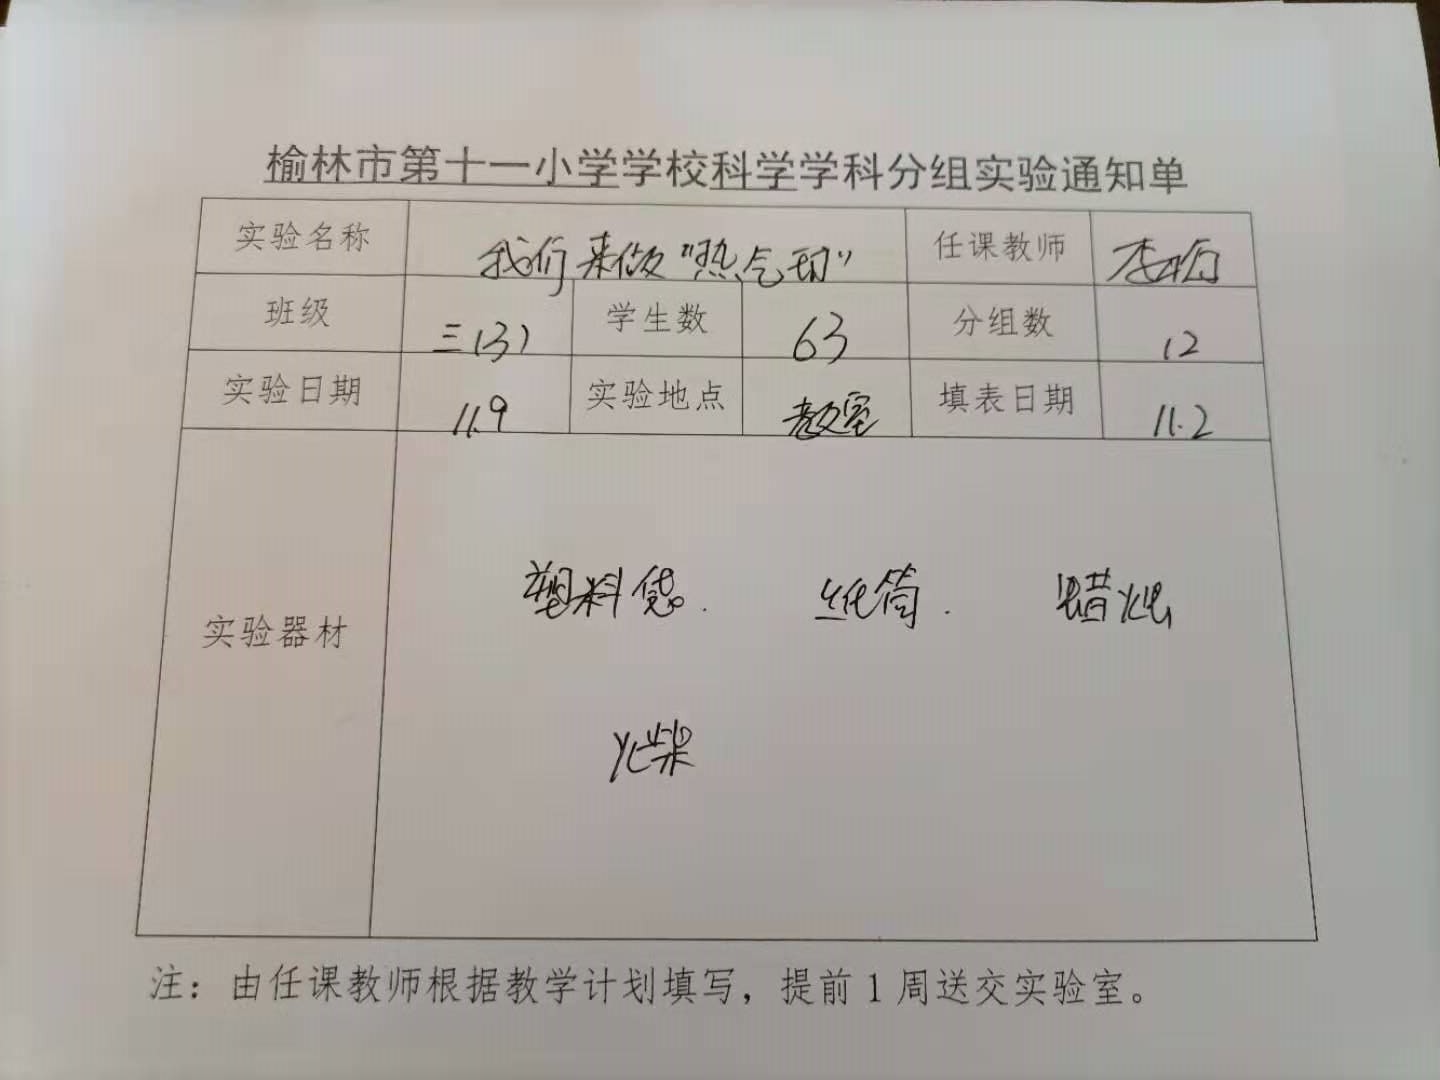 榆林市第十一小学学校科学学科分组实验通知单
实验名称 我们来做“热气球” 任课教师
班级 三(3) 学生数 63 分组数 12
实验日期 11.9 实验地点 教室 填表日期 11.2
实验器材 塑料袋. 纸筒. 蜡烛
火柴
注：由任课教师根据教学计划填写，提前1周送交实验室。